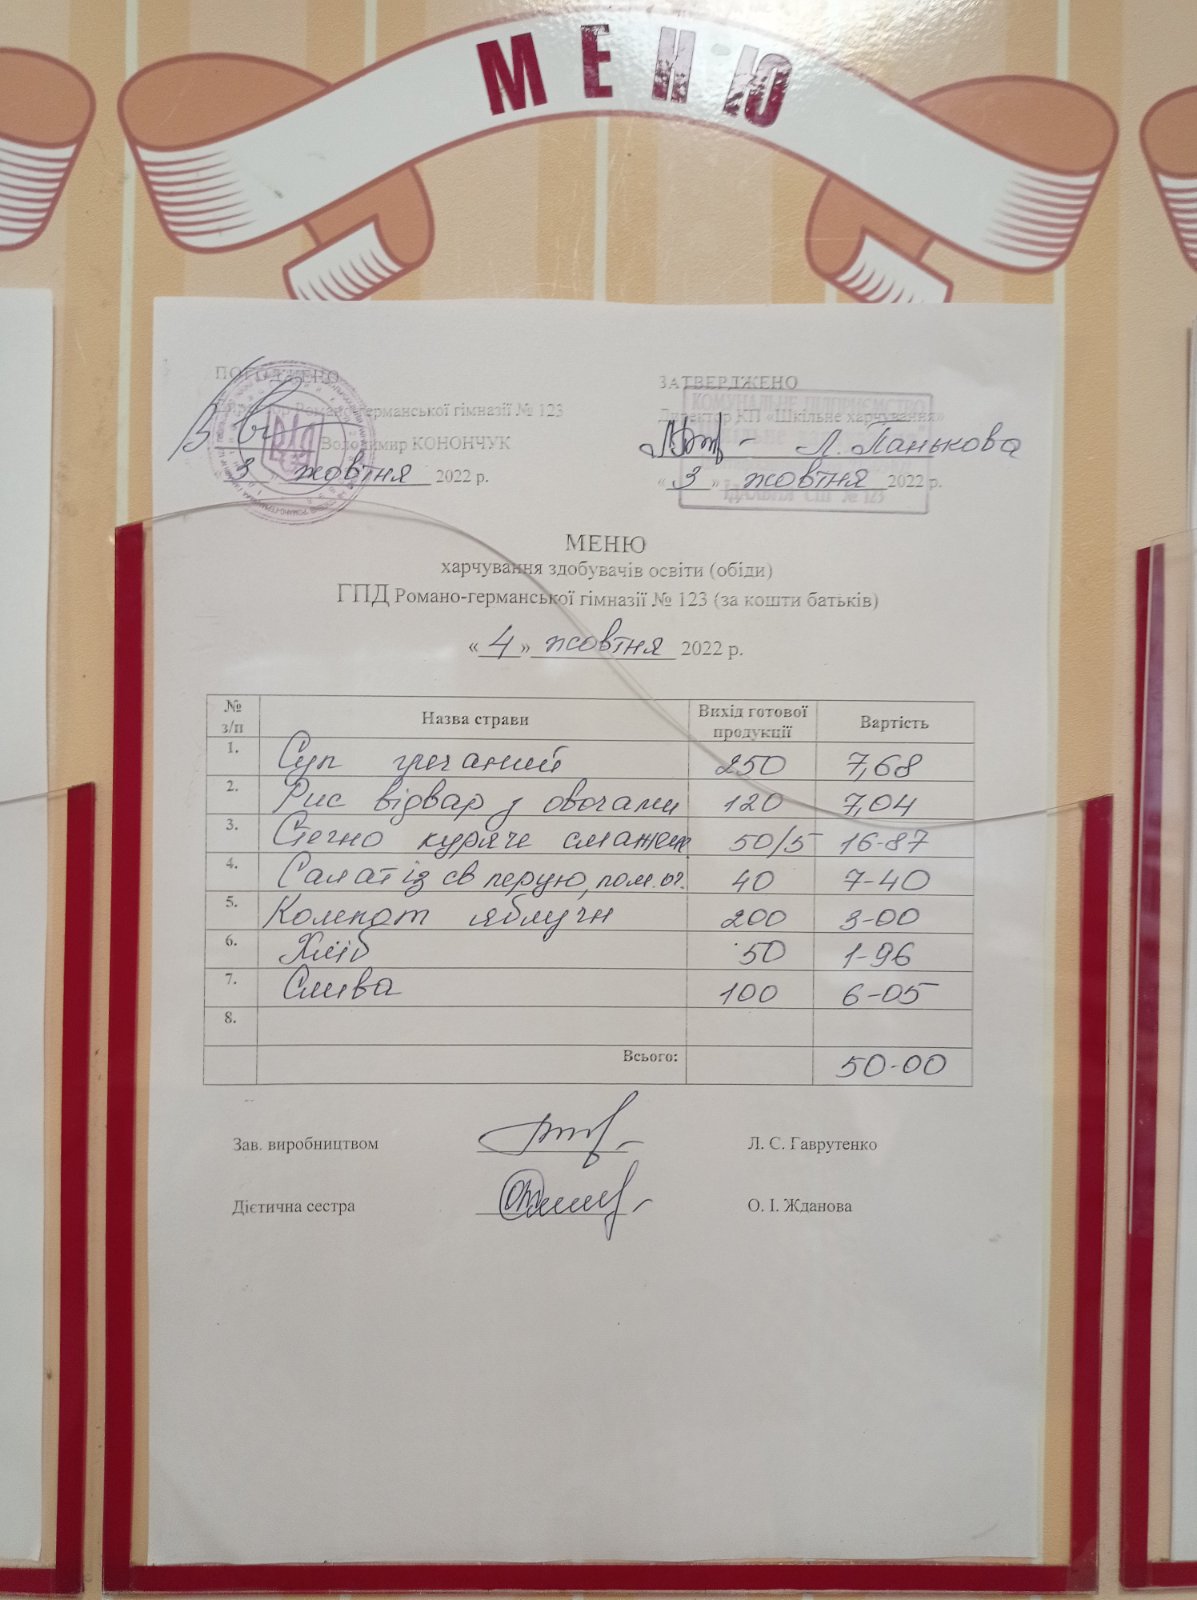 МЕНЮ
ПОГОДЖЕНО
Директор Романо-германської гімназії № 123
Володимир КОНОНЧУК
3 жовтня 2022 р.
ЗАТВЕРДЖЕНО
КОМУНАЛЬНЕ ПІДПРИЄМСТВО
Директор КП «Шкільне харчування»
Л. Панькова
«3» жовтня 2022 р.
ЇДАЛЬНЯ СШ № 123
МЕНЮ
харчування здобувачів освіти (обіди)
ГПД Романо-германської гімназії № 123 (за кошти батьків)
«4» жовтня 2022 р.
№ з/п Назва страви Вихід готової продукції Вартість
1. Суп гречаний 250 7,68
2. Рис відвар з овочами 120 7,04
3. Стегно куряче смажен 50/5 16-87
4. Салат із св перцю, пом. ог. 40 7-40
5. Компот яблучн 200 3-00
6. Хліб 50 1-96
7. Слива 100 6-05
8.
Всього: 50-00
Зав. виробництвом Л. С. Гаврутенко
Дієтична сестра О. І. Жданова